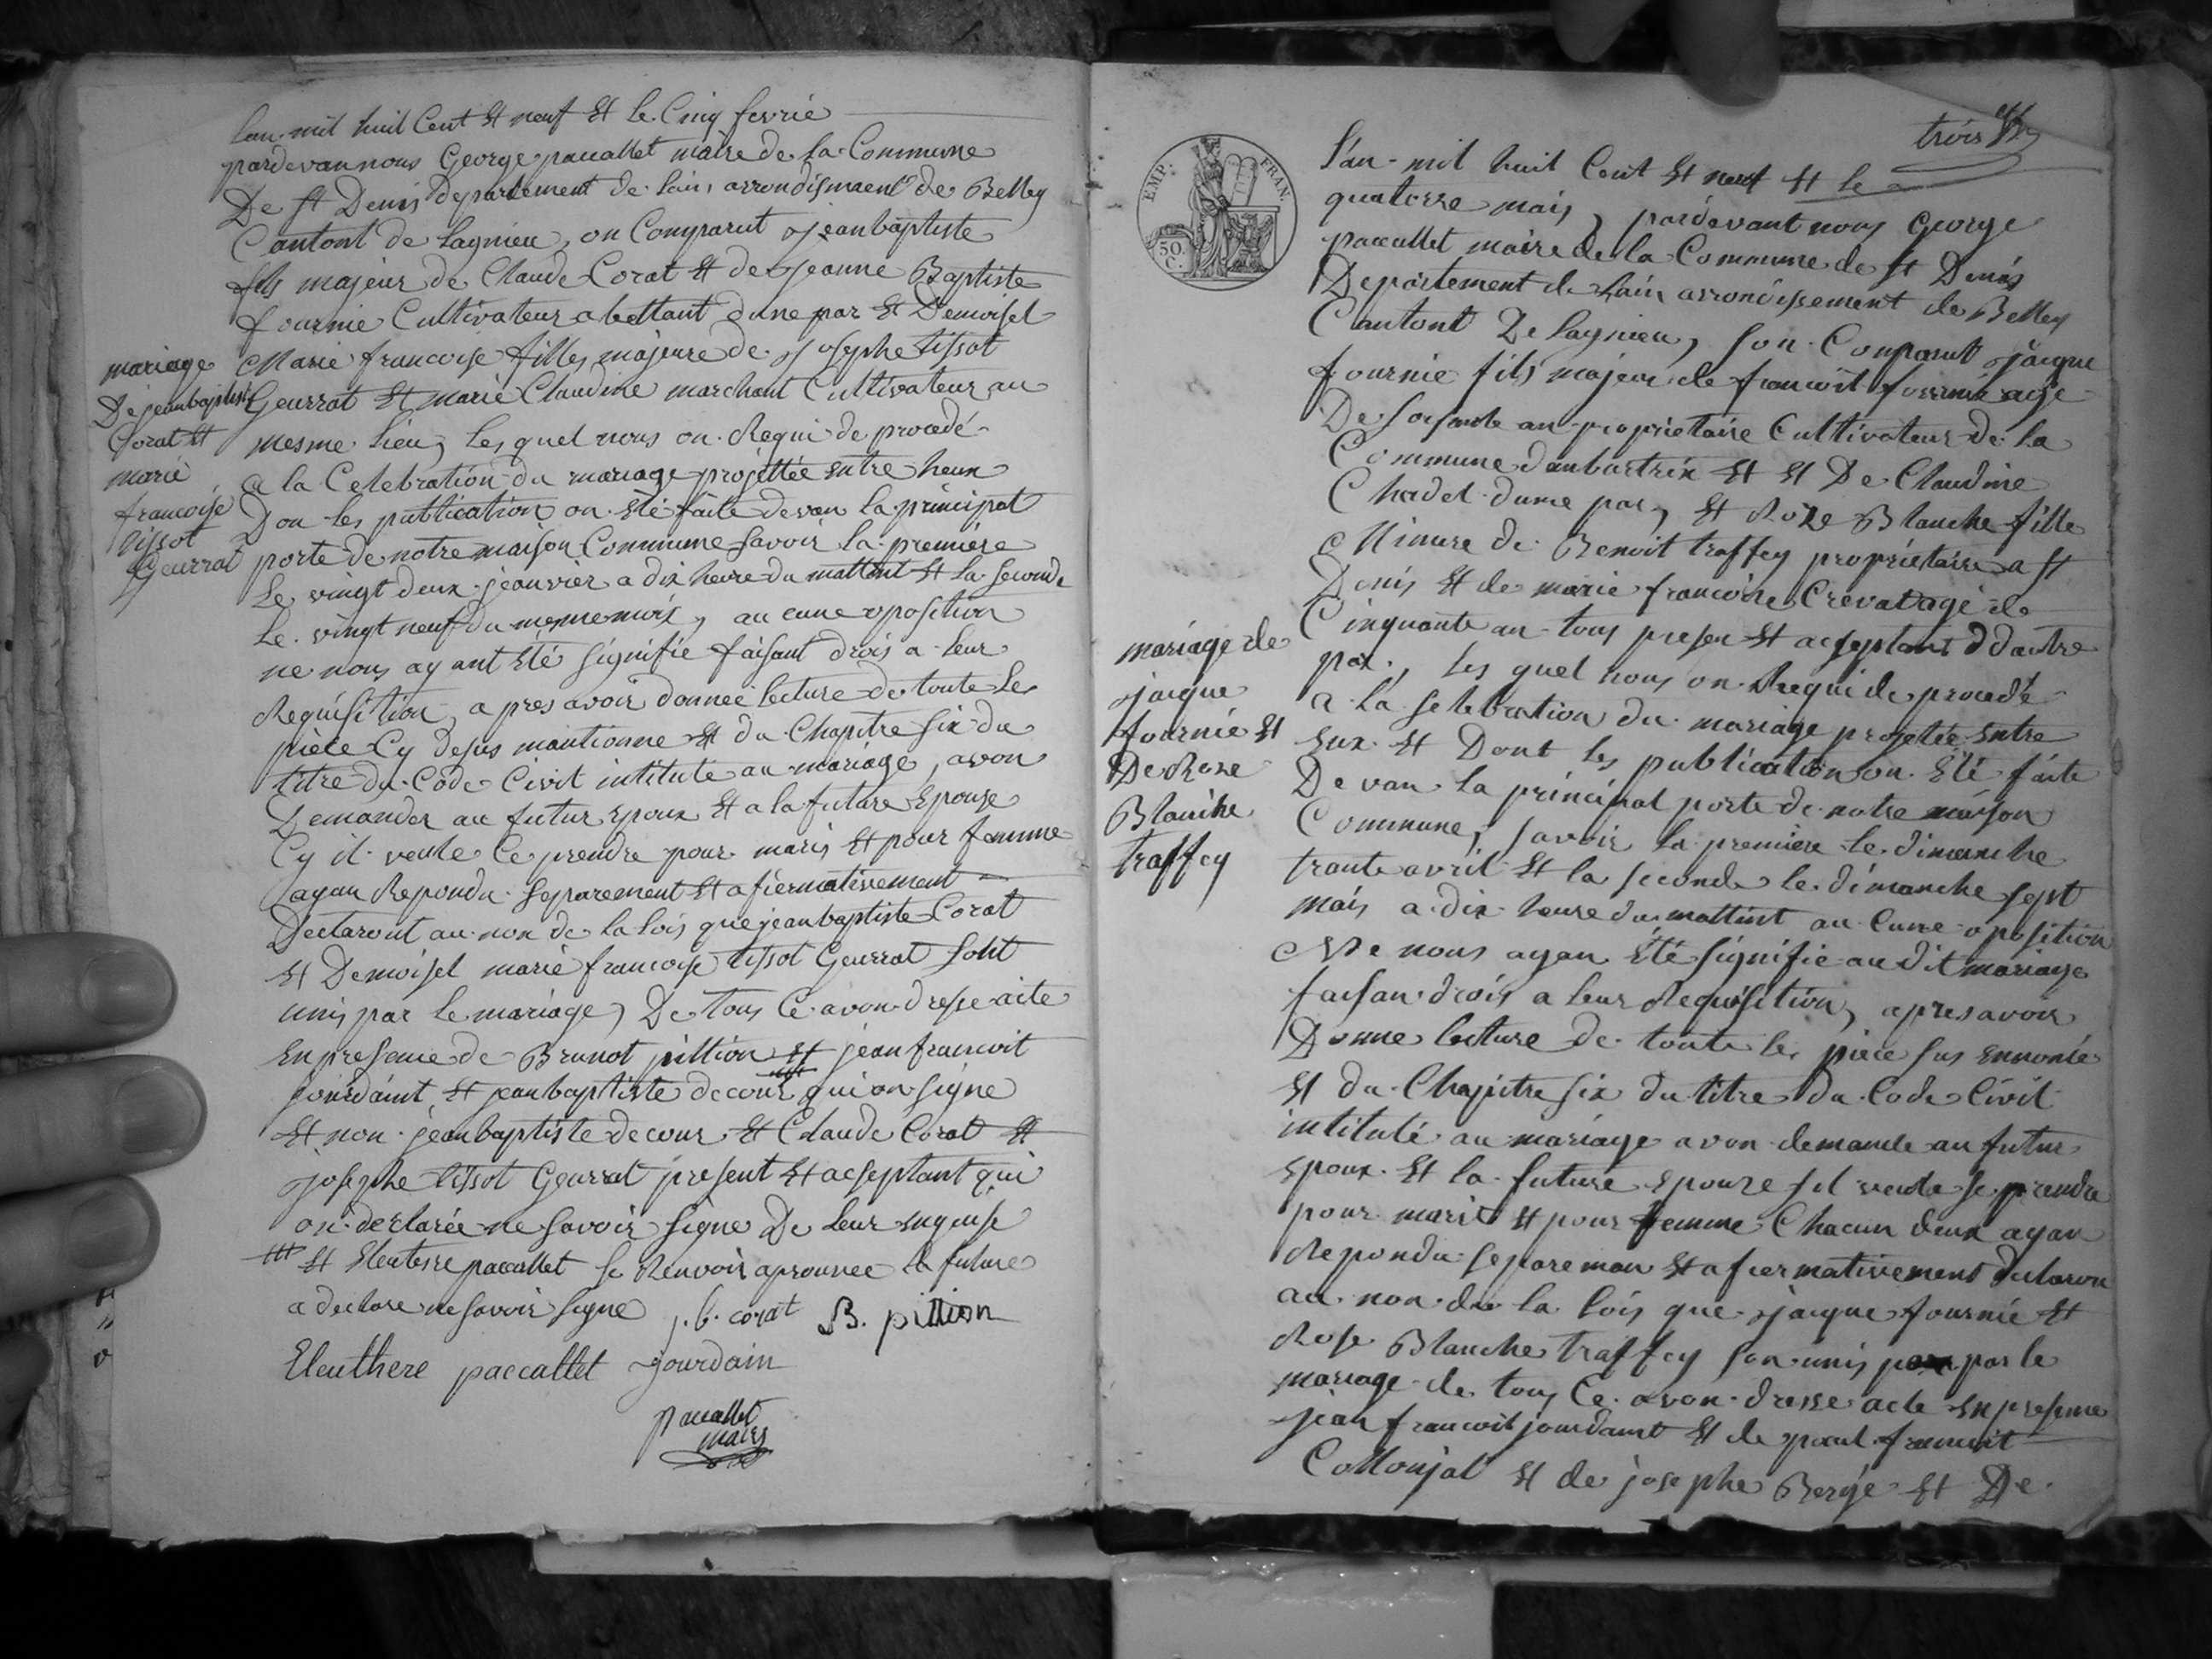 lan mil huil Cent et neuf et le Cinq fevrié
pardevan nous George paccallet maire de la Commune
De st Denis departement de lain, arrondismaent de Belley
Cantont de Lagnieu, on Comparut jeanbaptiste
fils majeur de Claude Corat et de jeanne Baptiste
fournie Cultivateur abettant dune par et Demoisel
Marie francoise filles majeure de josephe tissot
Geurrat et marie Claudine marchant Cultivateur au
mesme lieu, lesquel nous on Requi de procedé
a la Celebration du mariage projettée entre heux
Don les publication on été faite devan la principal
porte de notre maison Commune savoir la premiere
Le vingt deux jeanvier a dix heure du mattint et la seconde
Le vingt neuf du mesme moix, au cune oposition
ne nous ayant été signifie faisant drois a leur
Requisition, apres avoir donnée lecture de toute les
piece Cy desus mantionne et du Chapitre six du
titre du Code Civil intitule au mariage, avon
Demander au futur epoux et a la future epouse
Cy il veule Ce prendre pour maris et pour femme
ayan Repondu separement et afiermativement
Declaront au non de la lois que jeanbaptiste Corat
et Demoisel marie francoise tissot Geurrat sont
unis par le mariage, De tous Ce avon dresse acte
en presence de Brunot pittion et jean francoit
jourdaint et jeanbaptiste decour qui on signe
et non jeanbaptiste decour et Claude Corat et
josephe tissot Geurrat present et acseptant qui
on declarée ne savoir signe De leur enquise
et Eleutere paccallet le Renvoir aprouvee la future
a declare ne savoir signe j. b. corat B. pittion
Eleuthere paccallet jourdain
paccallet
maire
mariage
De jeanbaptiste
Corat et
marie
francoise
tissot
Geurrat
trois
EMP. FRAN.
50.
C.
L'an mil huil Cent et neuf et le
quatorze mais, pardevant nous George
paccallet maire de la Commune de st Denis
Departement de Lain arrondissement de Belley
Cantont De Lagnieu, son Comparut jacque
fournie fils majeur de francoit fournie age
De soisante an propriétaire Cultivateur de la
Commune danbutrix et et De Claudine
Chadel dune par, et Roze Blanche fille
Mineure de Benoit traffey propriétaire a st
Denis et de marie francoise Crevat age de
Cinquante an tous presen et acseptant D dautre
par, les quel nous on Requi de procedé
a la selebration du mariage projetée entre
eux et Dont les publication on Eté faite
De van la principal porte de notre maison
Commune, savoir la premiere le dimanche
trante avril et la seconde le dimanche sept
mais a dix heure du mattint au Cune oposition
Ne nous ayan été signifie au dit mariage
faisan drois a leur Requisition, apres avoir
Donne lecture de toute les piece sus ennonée
et du Chapitre six du titre du Code Civil
intitulé au mariage avon demande au futur
epoux et la future epouze sil veule se prendre
pour marit et pour femme Chacun deux ayan
Repondu separeman et afiermativement declaron
au non de la lois que jacque fournié et
Rose Blanche traffey son unis par le
mariage de tous Ce avon dresse acte en presence
jean francoit jourdaint et de paul francoit
Collonjat et de josephe Bergé et De
mariage de
jacque
fournie et
De Roze
Blanche
traffey